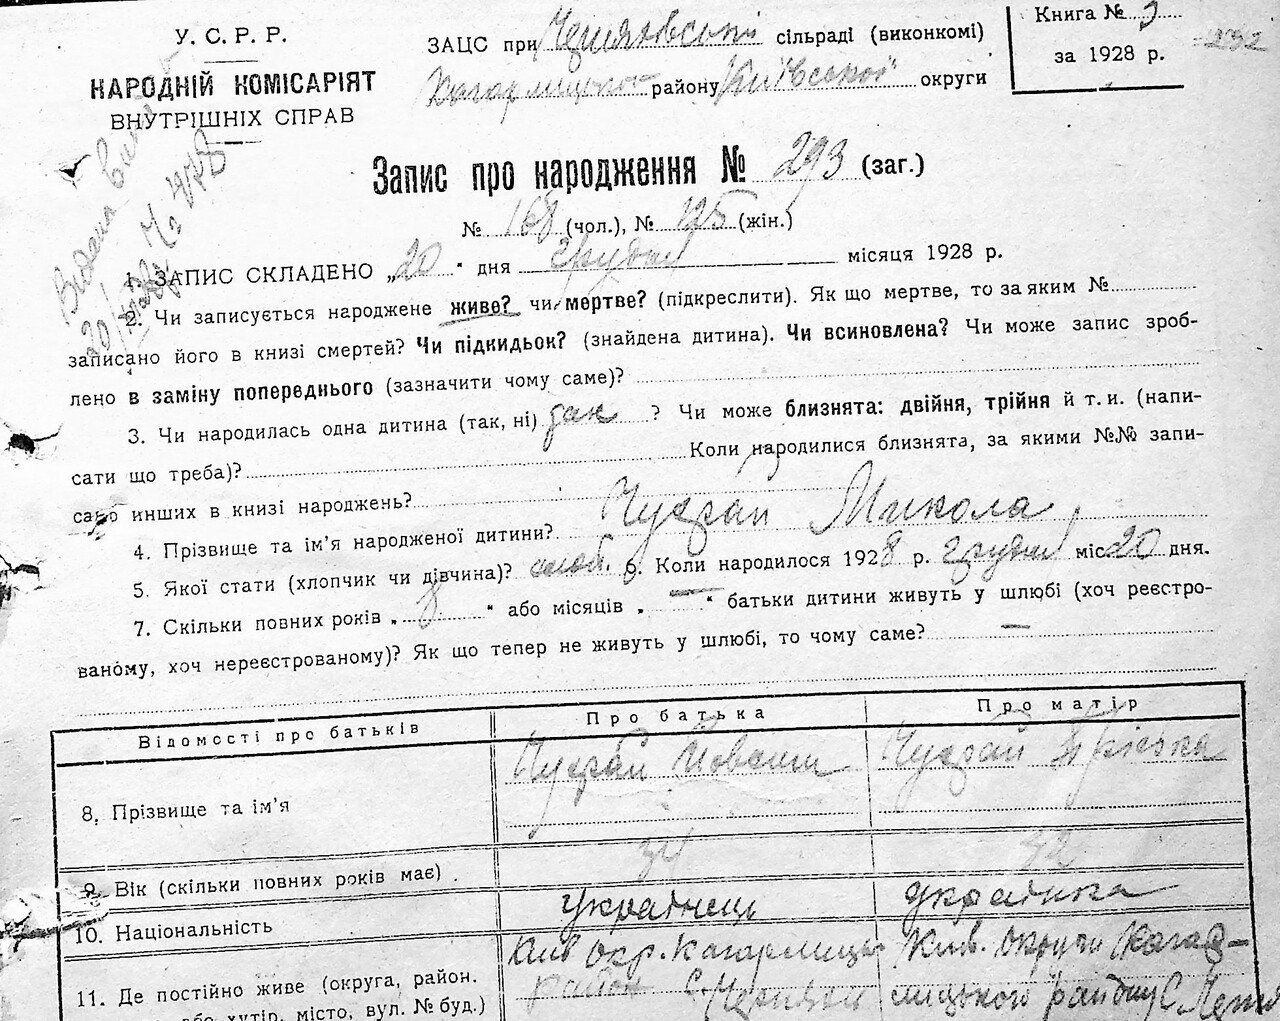 У. С. Р. Р.
НАРОДНІЙ КОМІСАРІЯТ
ВНУТРІШНІХ СПРАВ
ЗАЦС при Черняховській сільраді (виконкомі)
Кагарлицького району Київської округи
Книга № 3
за 1928 р.
232
Видана
20/
Запис про народження № 293 (заг.)
№ 168 (чол.), № 125 (жін.)
1. ЗАПИС СКЛАДЕНО „20" дня грудня місяця 1928 р.
2. Чи записується народжене живе? чи мертве? (підкреслити). Як що мертве, то за яким №
записано його в книзі смертей? Чи підкидьок? (знайдена дитина). Чи всиновлена? Чи може запис зроб-
лено в заміну попереднього (зазначити чому саме)?
3. Чи народилась одна дитина (так, ні) так ? Чи може близнята: двійня, трійня й т. и. (напи-
сати що треба)? Коли народилися близнята, за якими №№ запи-
сано инших в книзі народжень?
4. Прізвище та ім'я народженої дитини? Чуєрай Микола
5. Якої стати (хлопчик чи дівчина)? 6. Коли народилося 1928 р. грудня міс 20 дня.
7. Скільки повних років „ 8 " або місяців „ — " батьки дитини живуть у шлюбі (хоч реєстро-
ваному, хоч нереєстрованому)? Як що тепер не живуть у шлюбі, то чому саме? —
Відомості про батьків Про батька Про матір
8. Прізвище та ім'я Чуєрай Чуєрай Пріська
9. Вік (скільки повних років має) 34 32
10. Національність Українець Українка
11. Де постійно живе (округа, район.
або хутір, місто, вул. № буд.)
Київ Окр. Кагарлицьк
район С. Черняхів
Київ. округи Кагар-
лицького району С.